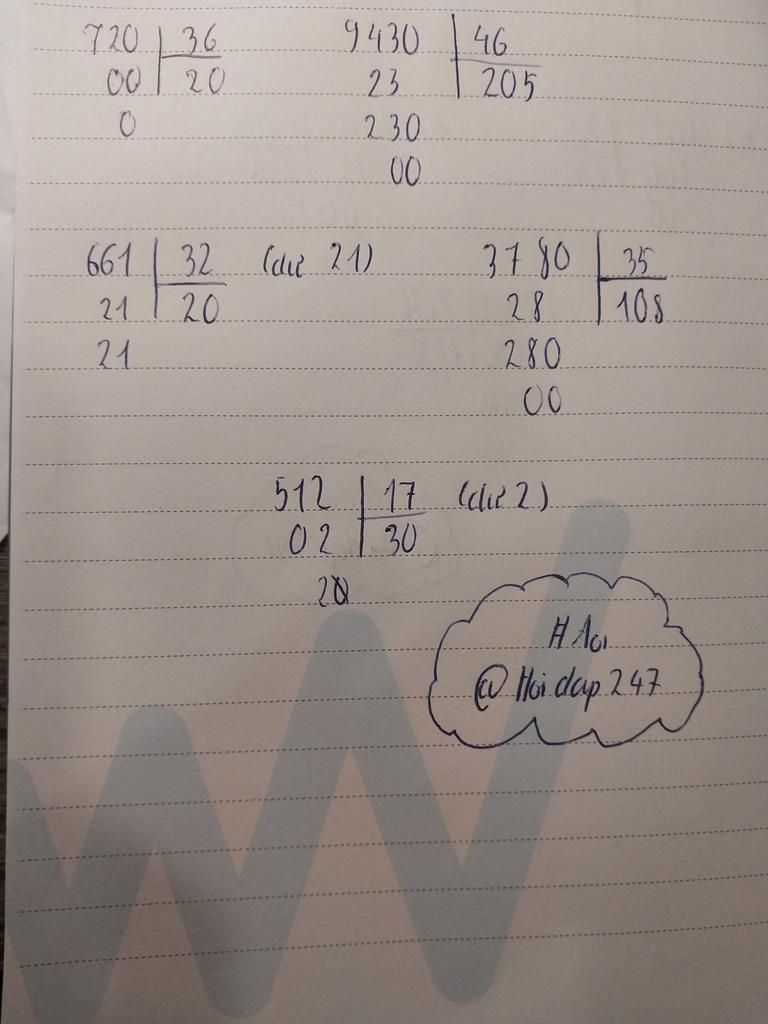 720 36
00 20
0
9430 46
23 205
230
00
661 32 (dư 21)
21 20
21
3780 35
28 108
280
00
512 17 (dư 2)
02 30
2
@ Hoidap247